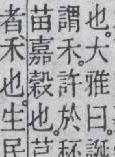 也。大雅曰誕
謂禾。許於秠
苗嘉穀也。芑
者禾也。生民